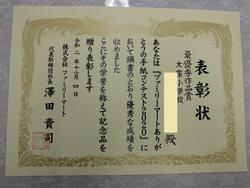 表彰状
最優秀作品賞
大塚小学校
殿
あなたは「ファミリーマートありが
とうの手紙コンテスト2020」に
おいて頭書のとおり優秀な成績を
収めました
ここにその栄誉を称えて記念品を
贈り表彰します
令和二年十二月四日
株式会社ファミリーマート
代表取締役社長 澤田貴司